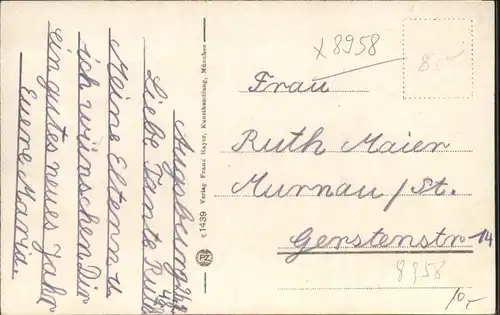 Augsburg
Liebe Tante Ruth
Meine Eltern u.
ich wünschen Dir
ein gutes neues Jahr
Euere Maria.
1439 Verlag Franz Hayer, Kunsthandlung, München
PZ
x 8958
Frau
Ruth Maier
Murnau / St.
Gerstenstr 14
8958
10,-